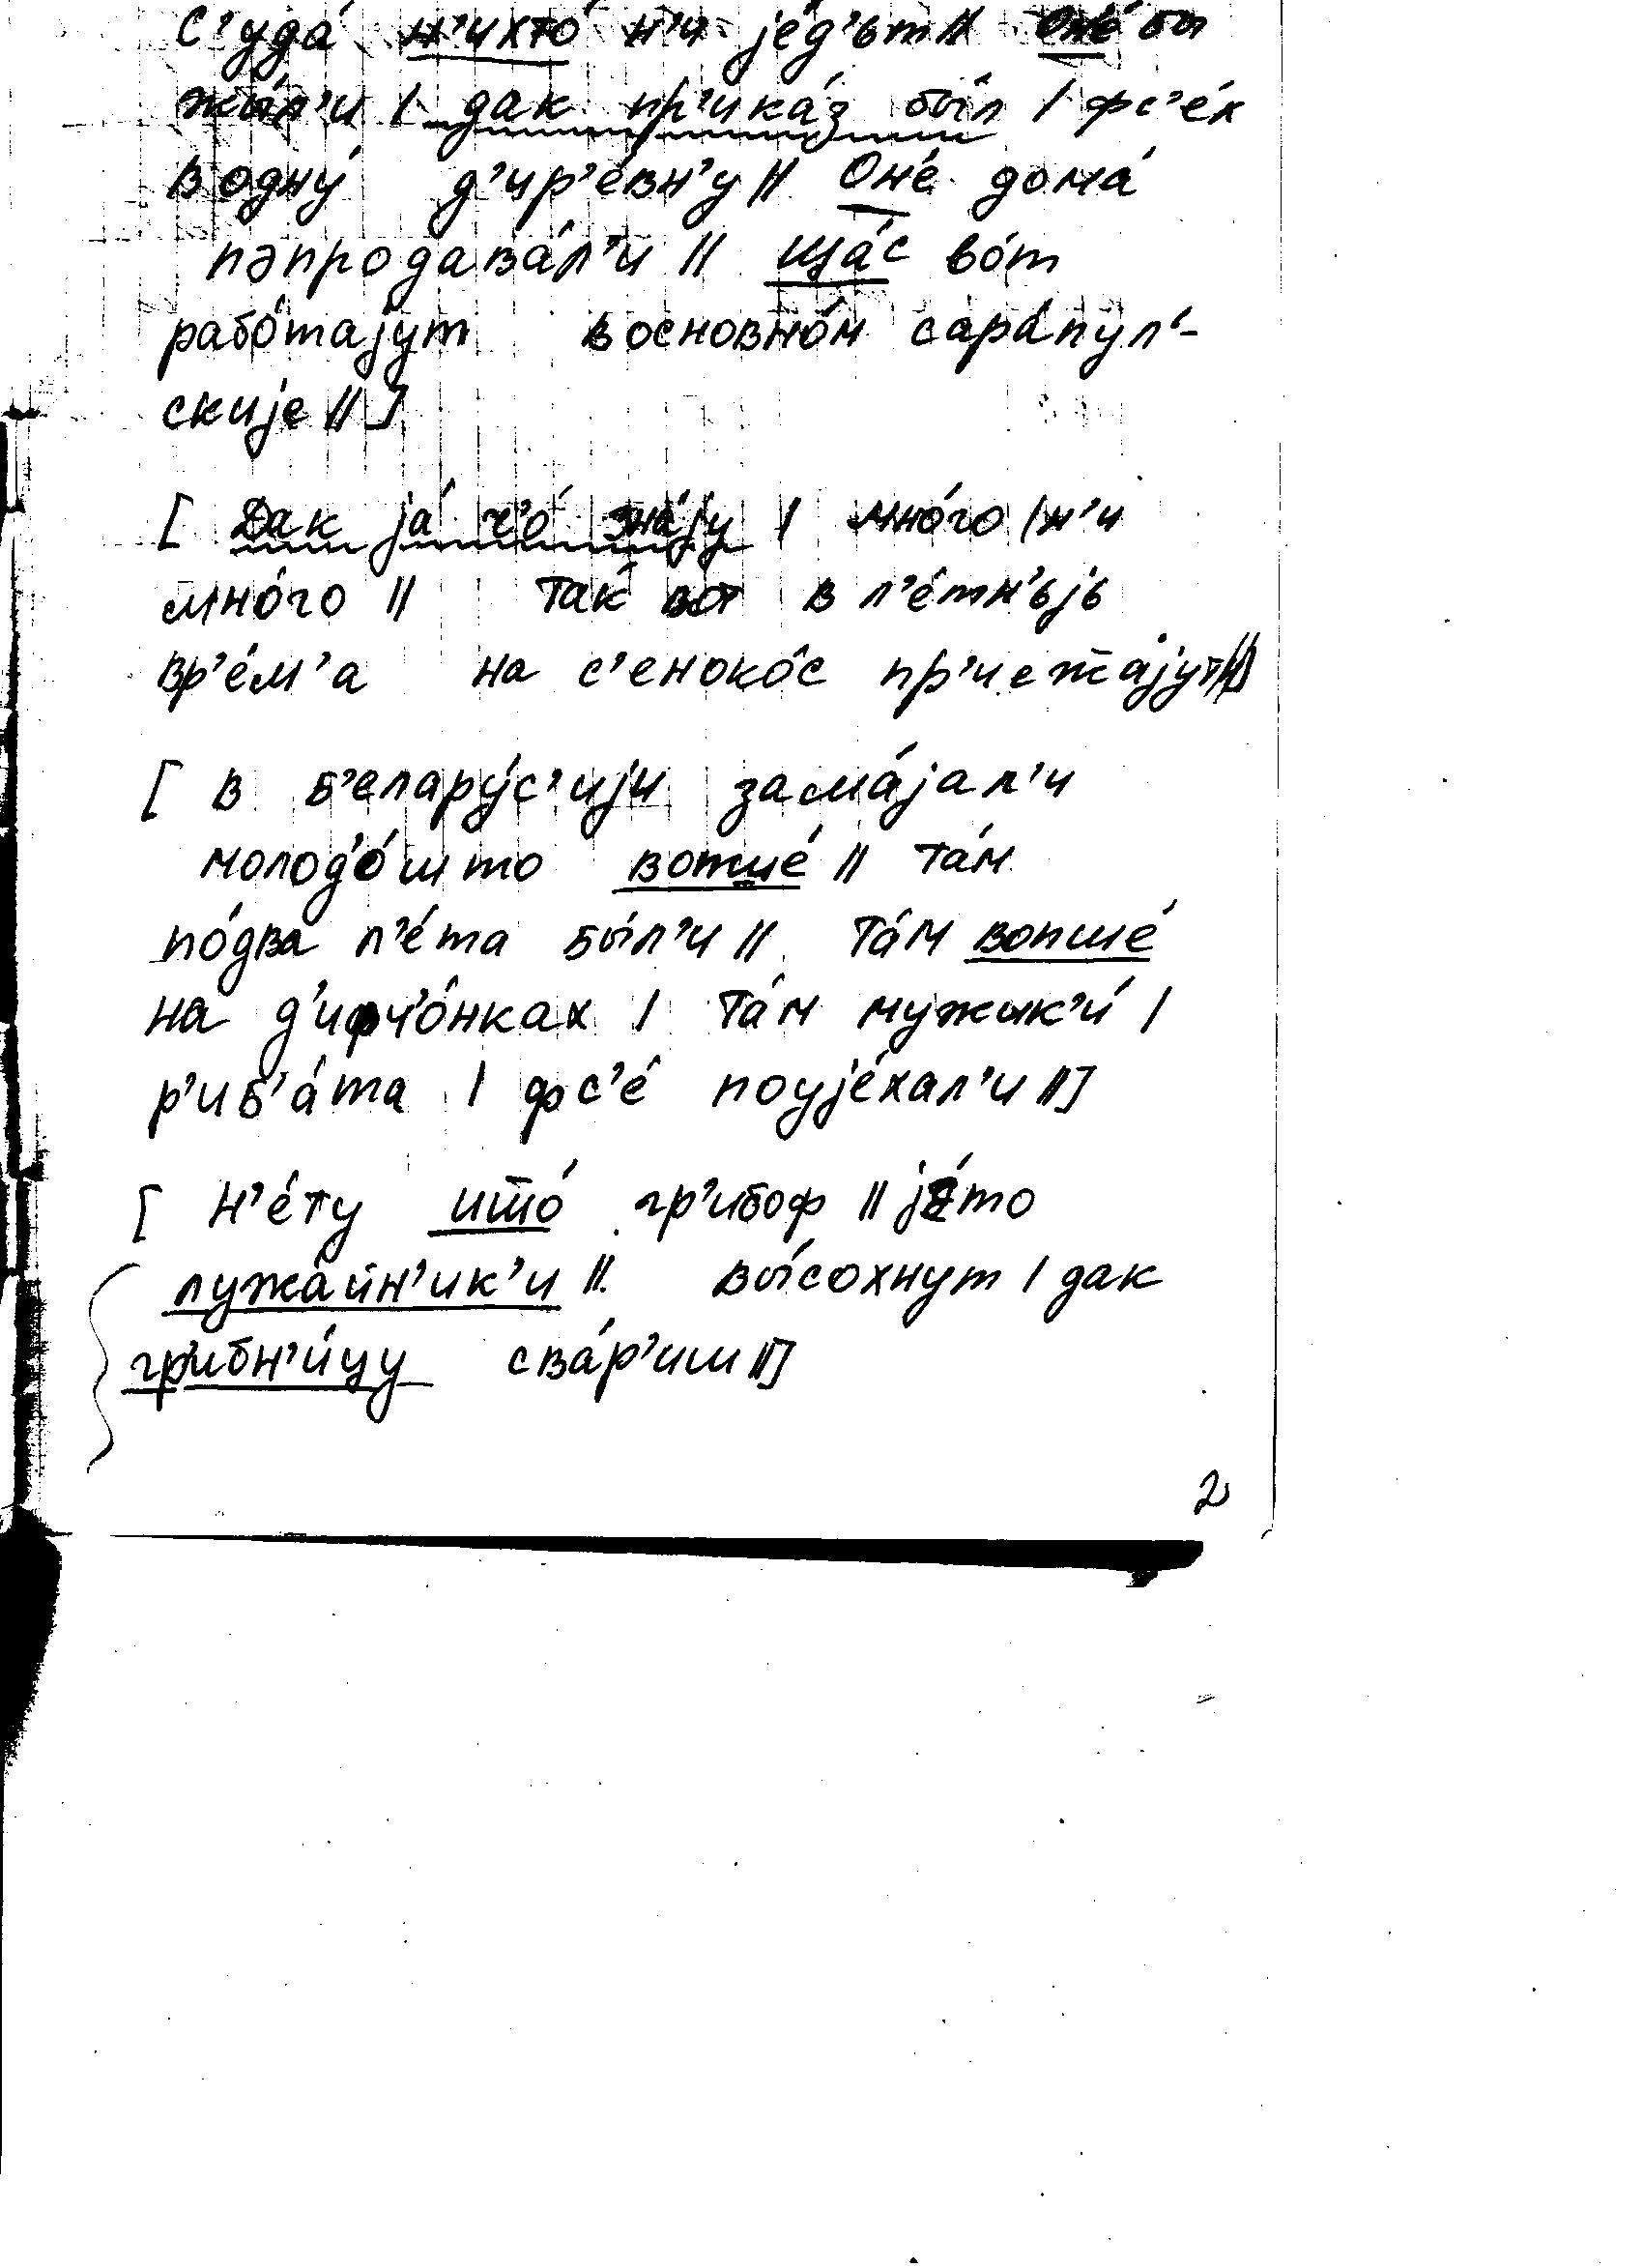 с'уда́ н'ихто́ н'и jе́д'ьт || Оне́ бы
жы́л'и | дак пр'ика́з бы́л | фс'е́х
в одну́ д'ир'е́вн'у || Оне́ дома́
пәпродава́л'и || ща́с во́т
рабо́таjут в основно́м сара́пул'-
скиjе || ]
[ Дак jа́ ч'о́ зна́jу | мно́го | н'и
мно́го || Та́к вот в л'е́тн'ьjь
вр'е́м'а на с'еноко́с пр'иежа́jут || ]
[ в б'елару́с'иjи зама́jал'и
молод'о́ш то вотше́ || та́м
по́два л'е́та бы́л'и || та́м вопше́
на д'ифч'о́нках | та́м мужык'и́ |
р'иб'а́та | фс'е́ поуjе́хал'и || ]
[ н'е́ту што́ гр'ибоф || jе́то
лужа́йн'ик'и || вы́сохнут | дак
гр'ибн'и́цу сва́р'иш || ]
2